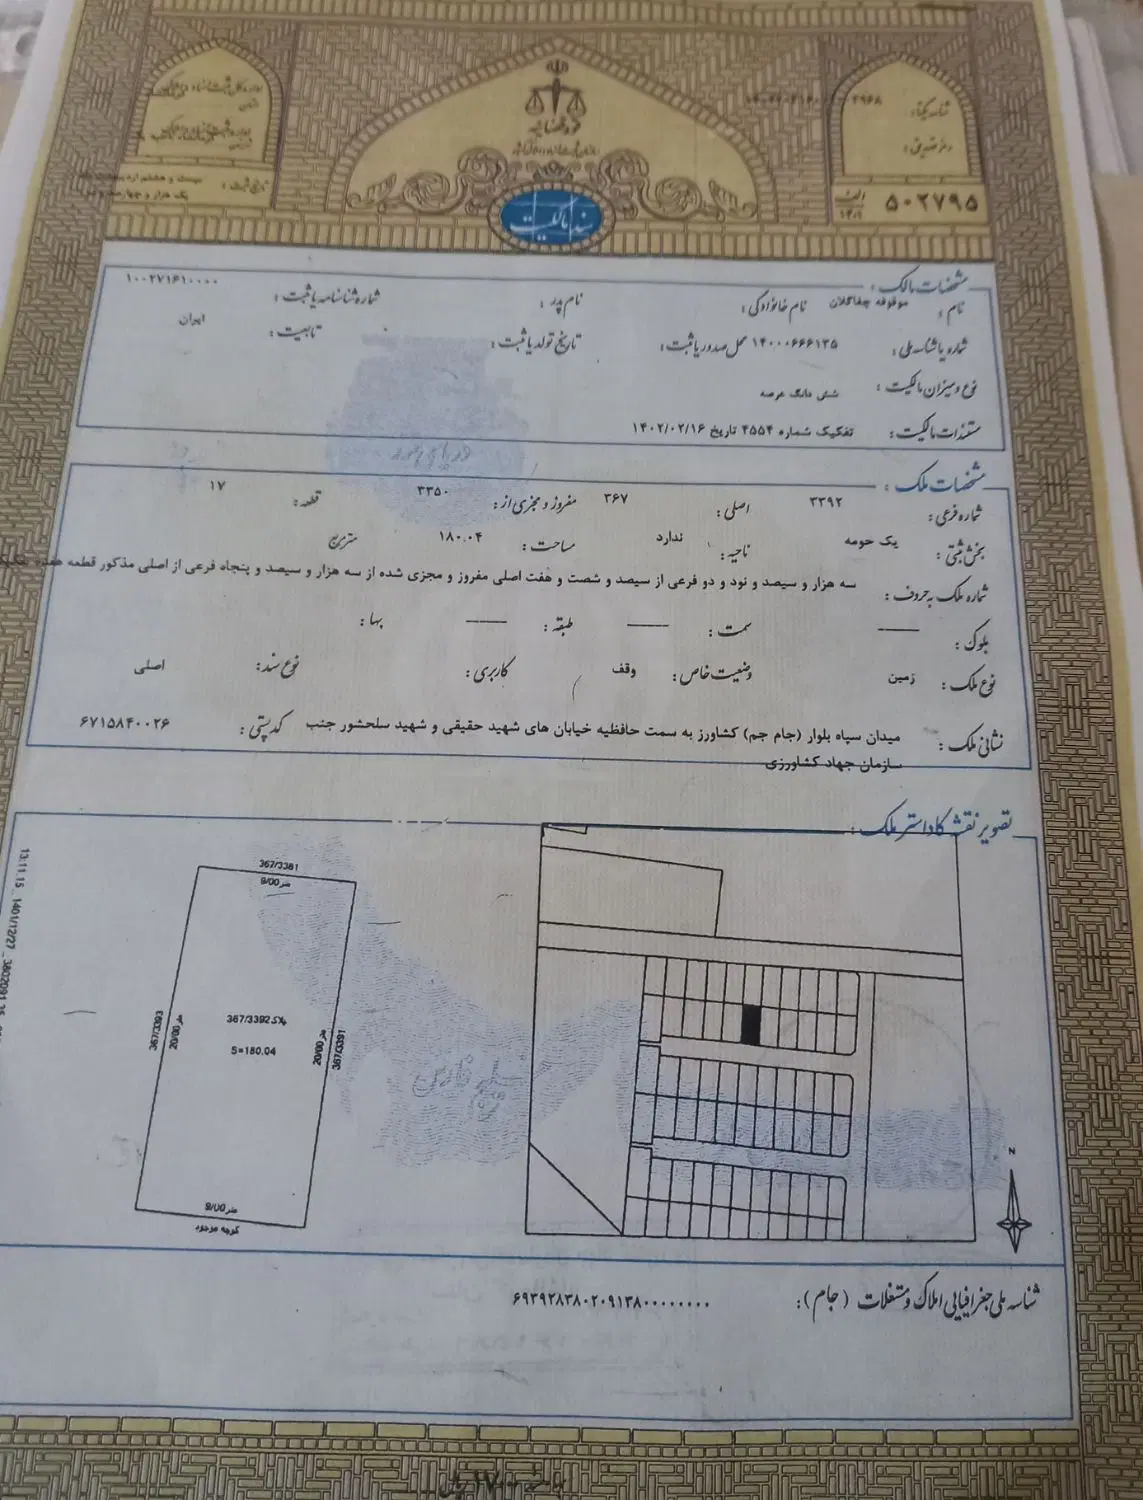 قوه قضاییه
شناسه یکتا:
رمز تصدیق:
۵۰۲۷۹۵
الف
۱۴۰۱
تاریخ ثبت:
سند مالکیت
مشخصات مالک:
نام: موقوفه چغاگلان نام خانوادگی: نام پدر: شماره شناسنامه یا ثبت: ۱۰۰۲۷۱۶۱۰۰۰۰
شماره یا شناسه ملی: ۱۴۰۰۰۶۶۶۱۳۵ محل صدور یا ثبت: تاریخ تولد یا ثبت: تابعیت: ایران
نوع و میزان مالکیت: شش دانگ عرصه
مستندات مالکیت: تفکیک شماره ۴۵۵۴ تاریخ ۱۴۰۲/۰۲/۱۶
مشخصات ملک:
شماره فرعی: ۳۳۹۲ اصلی: ۳۶۷ مفروز و مجزی از: ۳۳۵۰ قطعه: ۱۷
بخش ثبتی: یک حومه ناحیه: ندارد مساحت: ۱۸۰.۰۴ مترمربع
شماره ملک به حروف: سه هزار و سیصد و نود و دو فرعی از سیصد و شصت و هفت اصلی مفروز و مجزی شده از سه هزار و سیصد و پنجاه فرعی از اصلی مذکور قطعه هفده
بلوک: سمت: طبقه: بها:
نوع ملک: زمین وضعیت خاص: وقف کاربری: نوع سند: اصلی
نشانی ملک: میدان سپاه بلوار (جام جم) کشاورز به سمت حافظیه خیابان های شهید حقیقی و شهید سلحشور جنب سازمان جهاد کشاورزی کد پستی: ۶۷۱۵۸۴۰۰۲۶
تصویر نقشه کاداستر ملک:
367/3381
متر 9/00
367/3393
متر 20/00
پلاک 367/3392
S=180.04
متر 20/00
367/3391
متر 9/00
کوچه موجود
13:11:15_ 1401/12/27_
N
دریای خزر
خلیج فارس
شناسه ملی جغرافیایی املاک و مستغلات (جام): ۶۹۳۹۲۸۳۸۰۲۰۹۱۳۸۰۰۰۰۰۰۰۰